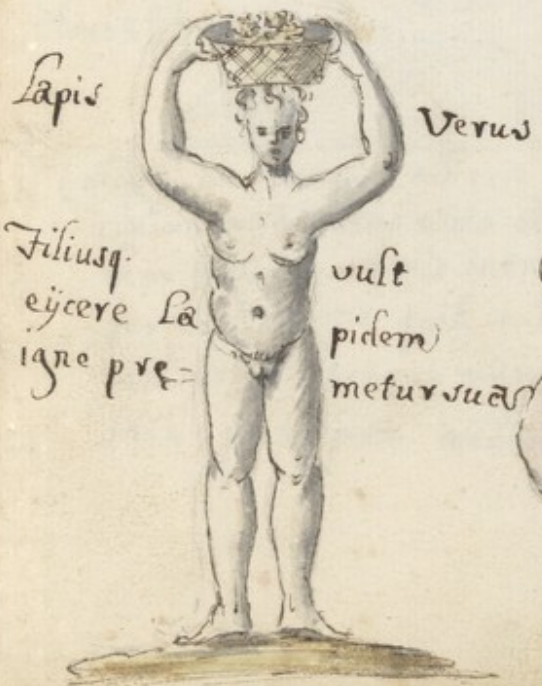 Lapis Verus
Filiusq. vult
eÿcere La pidem
igne prę= metur sua